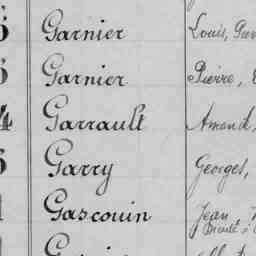 Garnier Louis,
Garnier Pierre,
4 Garrault Amand,
Garry Georges,
Gascouin Jean